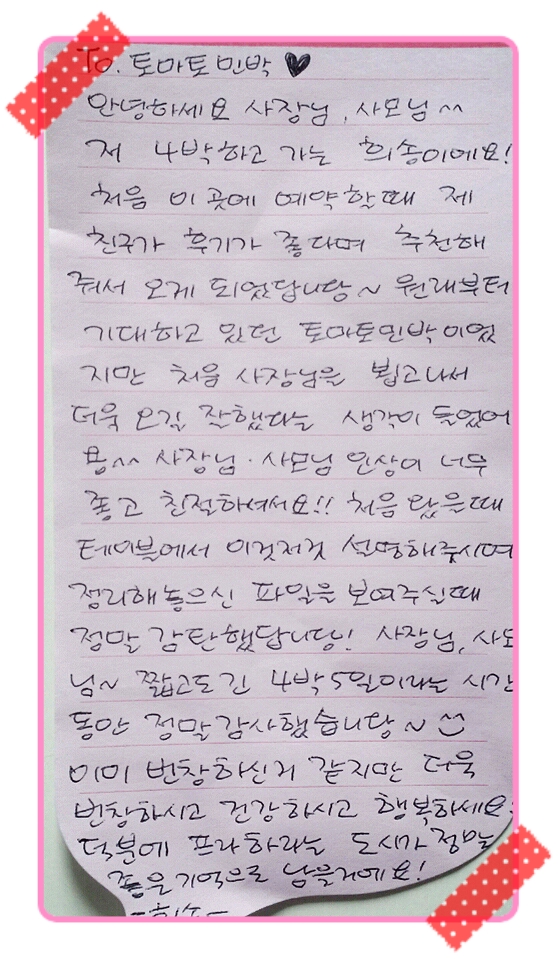 To. 토마토민박 ♥
안녕하세요 사장님, 사모님^^
저 4박하고 가는 희송이에요!
처음 이 곳에 예약할때 제
친구가 후기가 좋다며 추천해
줘서 오게 되었답니당~ 원래부터
기대하고 있던 토마토민박이었
지만 처음 사장님을 뵙고나서
더욱 오길 잘했다는 생각이 들었어
용^^ 사장님·사모님 인상이 너무
좋고 친절하셔서요!! 처음 왔을때
테이블에서 이것저것 설명해주시며
정리해놓으신 파일을 보여주실때
정말 감탄했답니당! 사장님, 사모
님~ 짧고도 긴 4박5일이라는 시간
동안 정말 감사했습니당~
이미 번창하신거 같지만 더욱
번창하시고 건강하시고 행복하세요
덕분에 프라하라는 도시가 정말
좋은 기억으로 남을거에요!